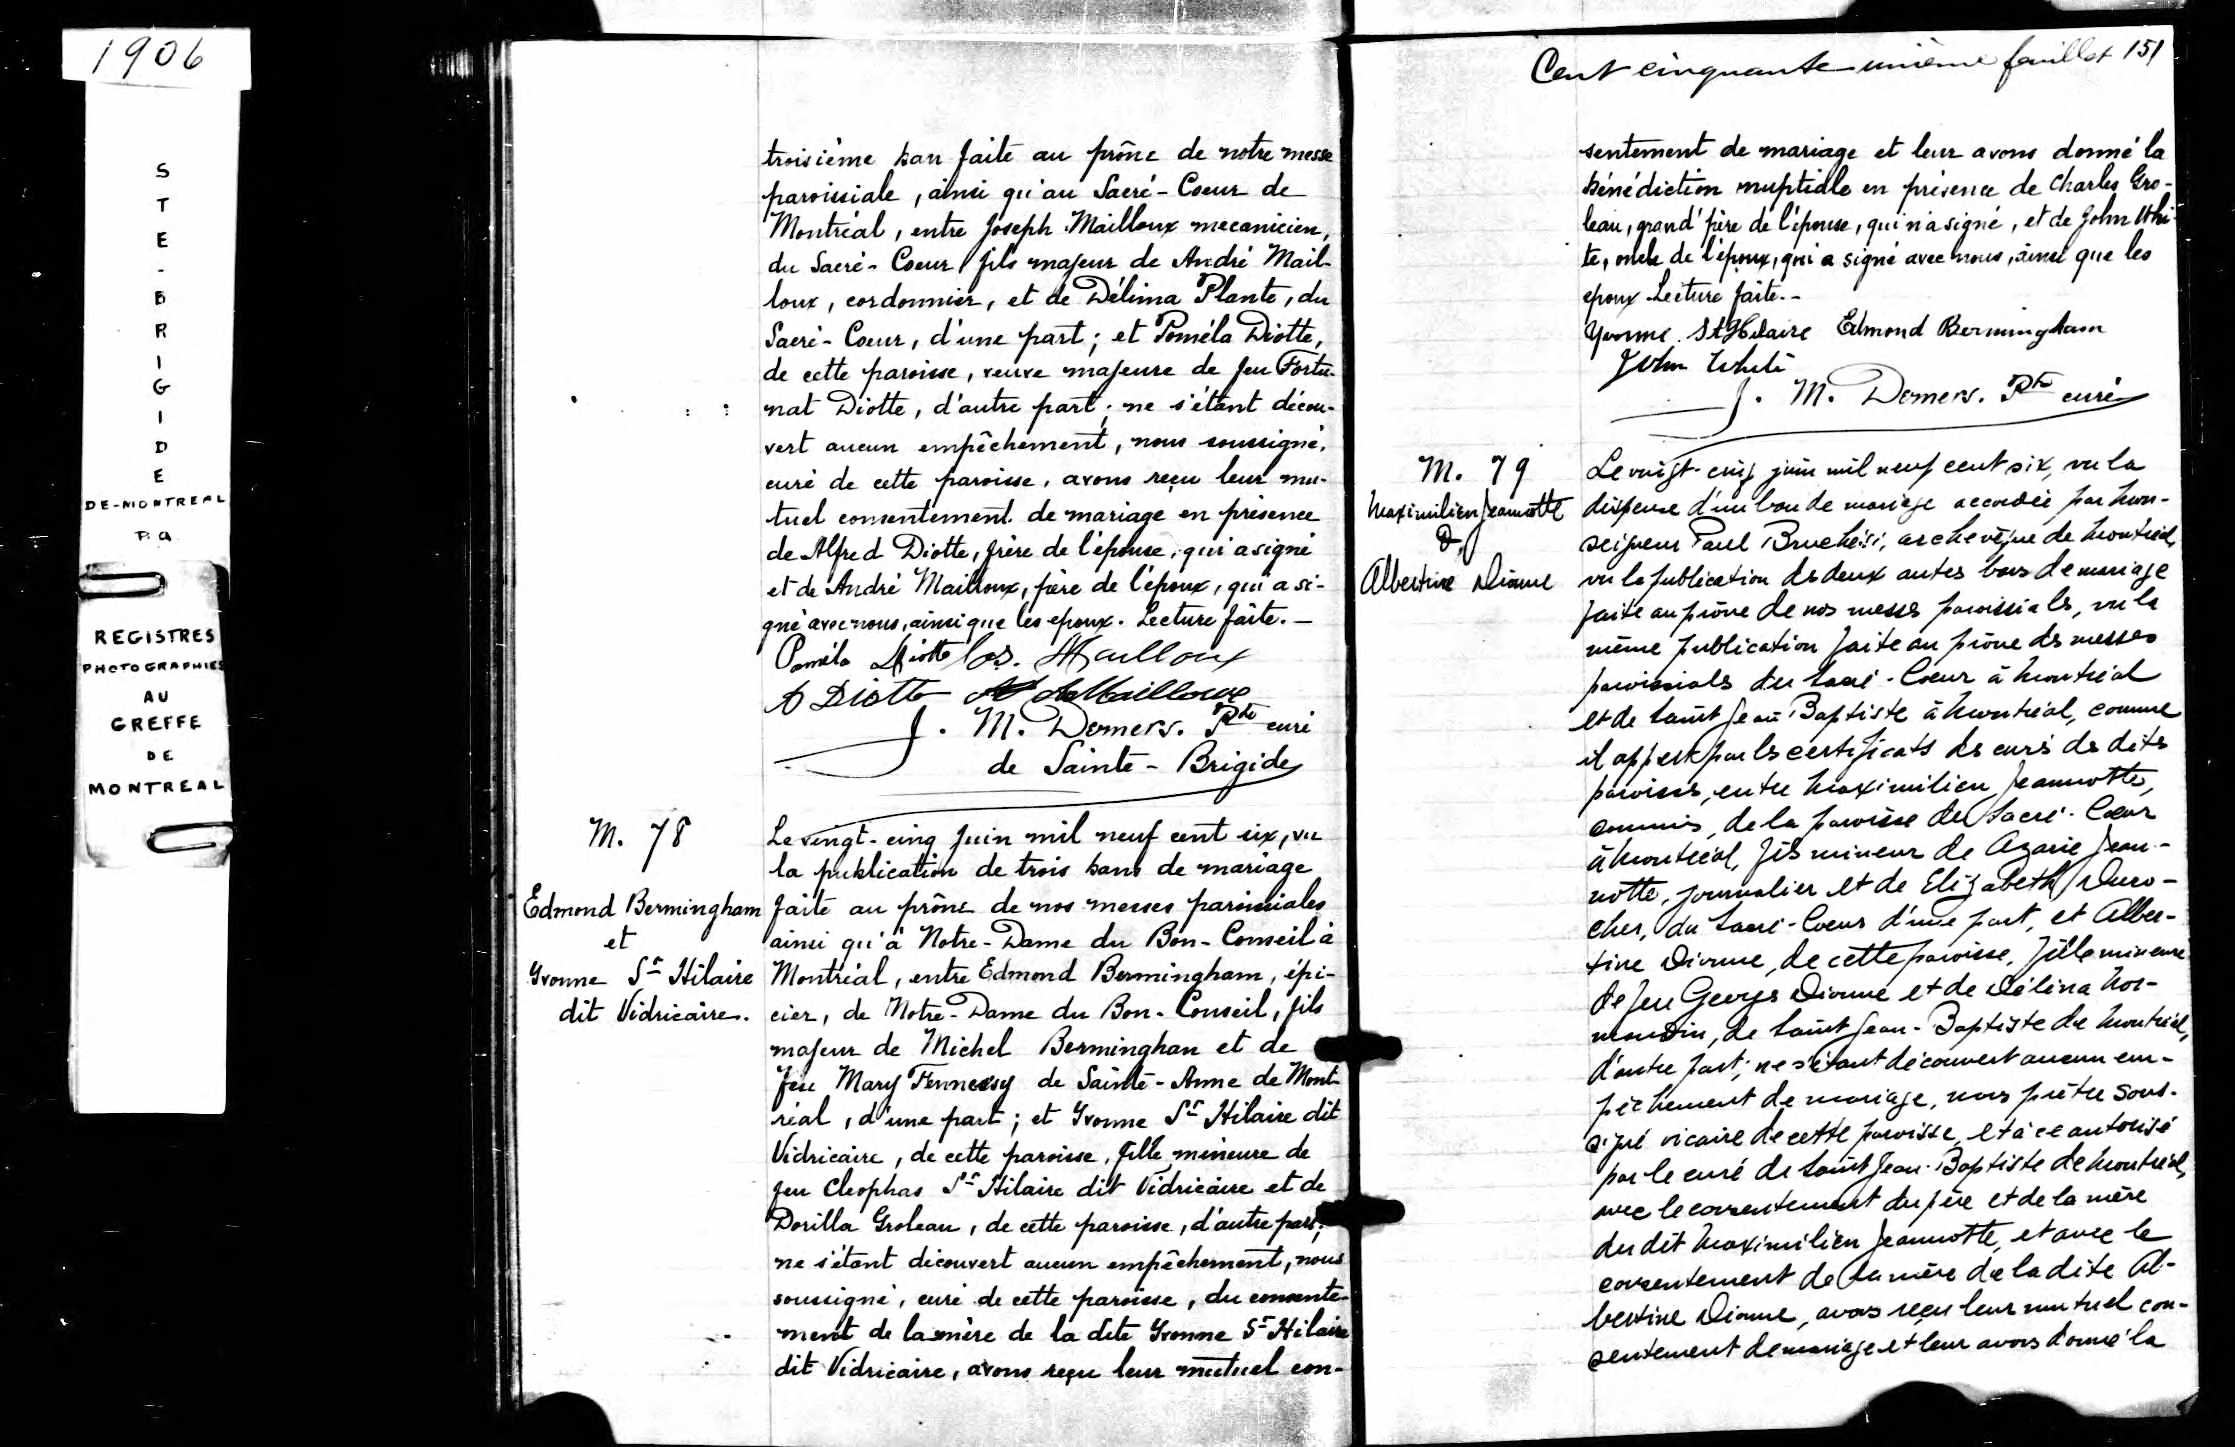 1906
S
T
E
-
B
R
I
G
I
D
E
DE-MONTREAL
P.Q
REGISTRES
PHOTOGRAPHIES
AU
GREFFE
DE
MONTREAL
troisième ban faite au prône de notre messe
paroissiale, ainsi qu'au Sacré-Coeur de
Montréal, entre Joseph Mailloux mecanicien,
du Sacré-Coeur, fils majeur de André Mail-
loux, cordonnier, et de Délima Plante, du
Sacré-Coeur, d'une part; et Paméla Diotte,
de cette paroisse, veuve majeure de feu Fortu-
nat Diotte, d'autre part; ne s'étant décou-
vert aucun empêchement, nous soussigné,
curé de cette paroisse, avons reçu leur mu-
tuel consentement de mariage en présence
de Alfred Diotte, frère de l'épouse, qui a signé
et de André Mailloux, père de l'époux, qui a si-
gné avec nous, ainsi que les epoux. Lecture faite. -
Paméla Diotte Jos. Mailloux
A Diotte A Mailloux
J. M. Demers. Ptre curé
de Sainte-Brigide
M. 78
Edmond Bermingham
et
Yvonne St Hilaire
dit Vidricaire.
Le vingt-cinq juin mil neuf cent six, vu
la publication de trois bans de mariage
faite au prône de nos messes paroissiales
ainsi qu'à Notre-Dame du Bon-Conseil à
Montréal, entre Edmond Bermingham, épi-
cier, de Notre-Dame du Bon-Conseil, fils
majeur de Michel Bermingham et de
feu Mary Fennessy de Sainte-Anne de Mont-
réal, d'une part; et Yvonne St Hilaire dit
Vidricaire, de cette paroisse, fille mineure de
feu Cleophas St Hilaire dit Vidricaire et de
Dorilla Groleau, de cette paroisse, d'autre part;
ne s'étant découvert aucun empêchement, nous
soussigné, curé de cette paroisse, du consente-
ment de la mère de la dite Yvonne St Hilaire
dit Vidricaire, avons reçu leur mutuel con-
Cent cinquante unième feuillet 151
sentement de mariage et leur avons donné la
bénédiction nuptiale en présence de Charles Gro-
leau, grand'père de l'épouse, qui n'a signé, et de John Whi-
te, oncle de l'époux, qui a signé avec nous, ainsi que les
epoux. Lecture faite. -
Yvonne St Hilaire Edmond Bermingham
John White
J. M. Demers. Ptre curé
M. 79
Maximilien Jeannotte
&
Albertine Dionne
Le vingt-cinq juin mil neuf cent six, vu la
dispense d'un ban de mariage accordée par Mon-
seigneur Paul Bruchési, archevêque de Montréal,
vu la publication des deux autres bans de mariage
faite au prône de nos messes paroissiales, vu la
même publication faite au prône des messes
paroissiales du Sacré-Coeur à Montréal
et de Saint Jean Baptiste à Montréal, comme
il appert par les certificats des curés des dites
paroisses, entre Maximilien Jeannotte,
commis, de la paroisse du Sacré-Coeur
à Montréal, fils mineur de Azarie Jean-
notte, journalier et de Elizabeth Duro-
cher, du Sacré-Coeur d'une part, et Alber-
tine Dionne, de cette paroisse, fille mineure
de feu Georges Dionne et de Délina Nor-
mandin, de Saint Jean-Baptiste de Montréal,
d'autre part; ne s'étant découvert aucun em-
pêchement de mariage, nous prêtre sous-
signé vicaire de cette paroisse, et à ce autorisé
par le curé de Saint Jean-Baptiste de Montréal,
avec le consentement du père et de la mère
du dit Maximilien Jeannotte, et avec le
consentement de la mère de la dite Al-
bertine Dionne, avons reçu leur mutuel con-
sentement de mariage et leur avons donné la